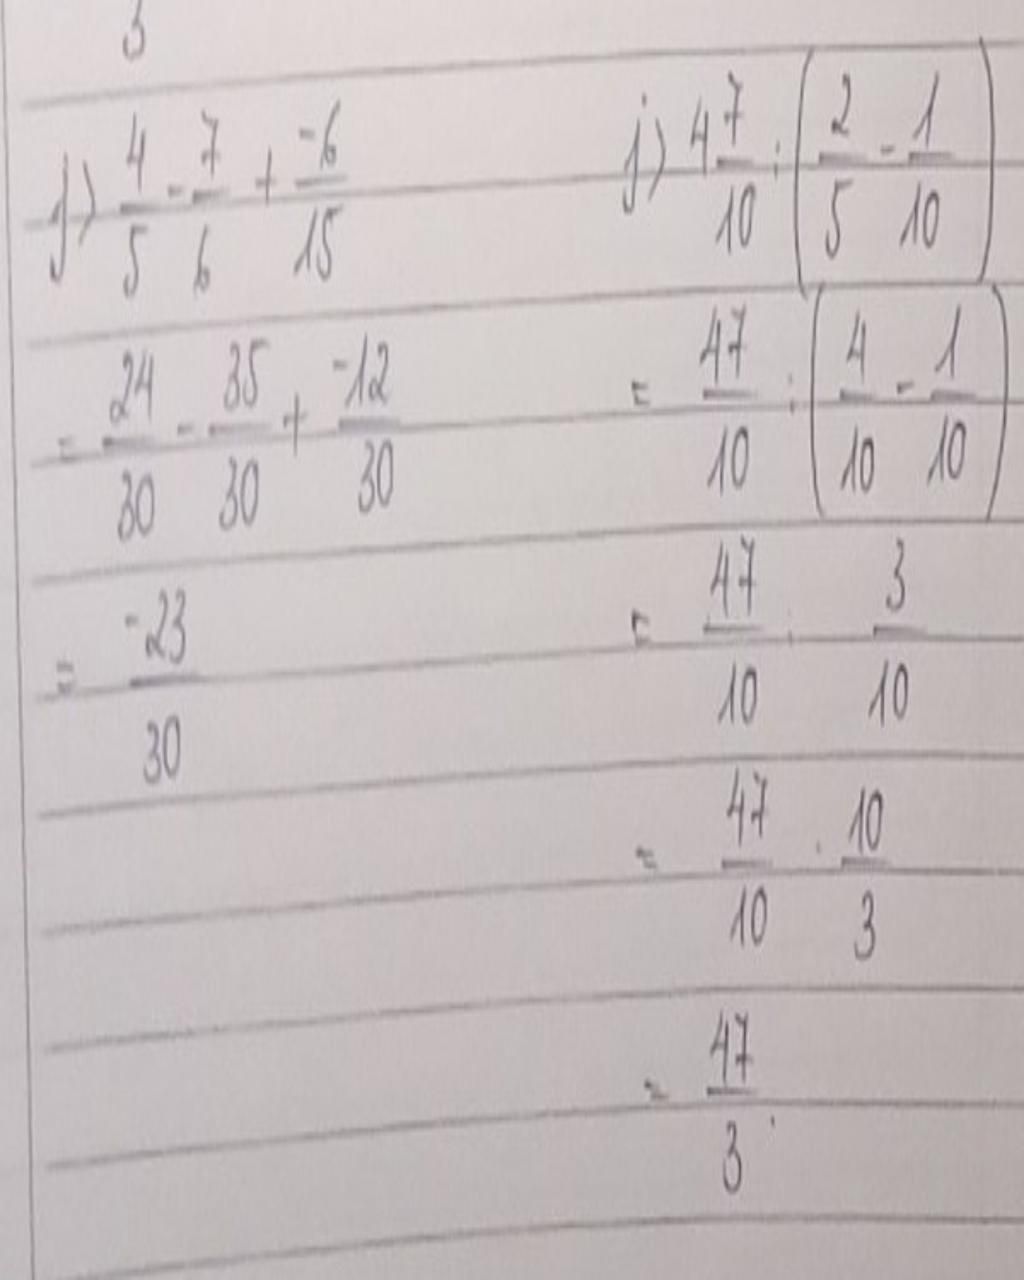 3
j) 4/5 - 7/6 + -6/15
= 24/30 - 35/30 + -12/30
= -23/30
j) 4 7/10 : (2/5 - 1/10)
= 47/10 : (4/10 - 1/10)
= 47/10 : 3/10
= 47/10 . 10/3
= 47/3